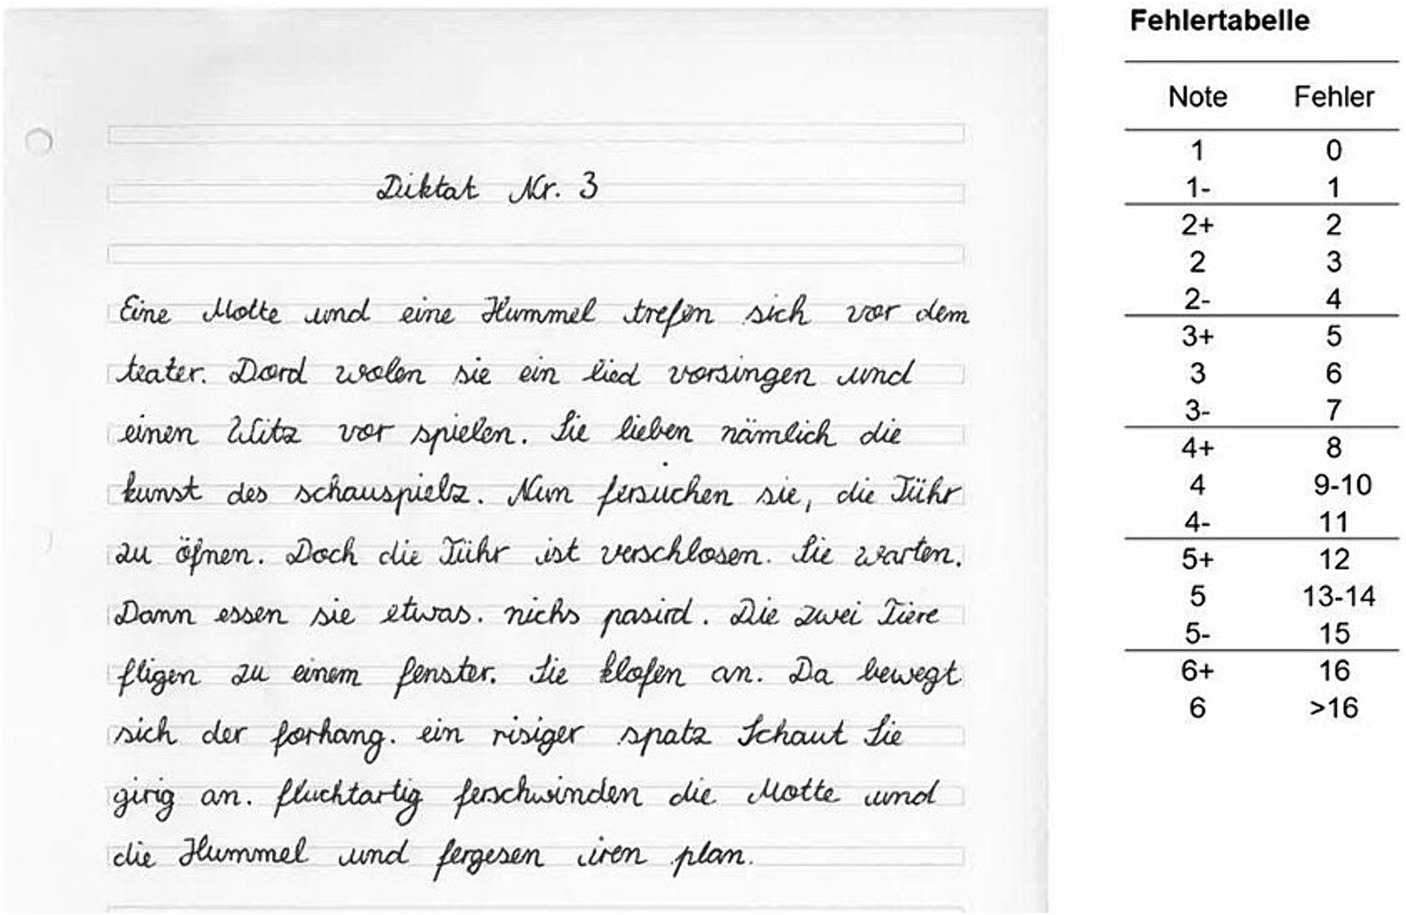 Diktat Nr. 3
Eine Motte und eine Hummel trefen sich vor dem
teater. Dord wolen sie ein lied vorsingen und
einen Witz vor spielen. Sie lieben nämlich die
kunst des schauspielz. Nun fersuchen sie, die Tühr
zu öfnen. Doch die Tühr ist verschlosen. Sie warten.
Dann essen sie etwas. nichs pasird. Die zwei Tiere
fligen zu einem fenster. Sie klofen an. Da bewegt
sich der forhang. ein risiger spatz Schaut Sie
girig an. fluchtartig ferschwinden die Motte und
die Hummel und fergesen iren plan.
Fehlertabelle
Note Fehler
1 0
1- 1
2+ 2
2 3
2- 4
3+ 5
3 6
3- 7
4+ 8
4 9-10
4- 11
5+ 12
5 13-14
5- 15
6+ 16
6 >16